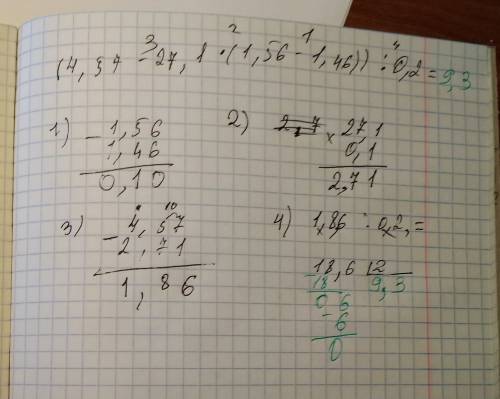 2 1
3 4
(4,57 - 27,1 · (1,56 - 1,46)) : 0,2 = 9,3
1) - 1,56
1,46
0,10
2) 2,7 × 27,1
0,1
2,71
3) 10
- 4,57
2,71
1,86
4) 1,86 : 0,2, =
18,6 | 2
18 9,3
0 6
- 6
0